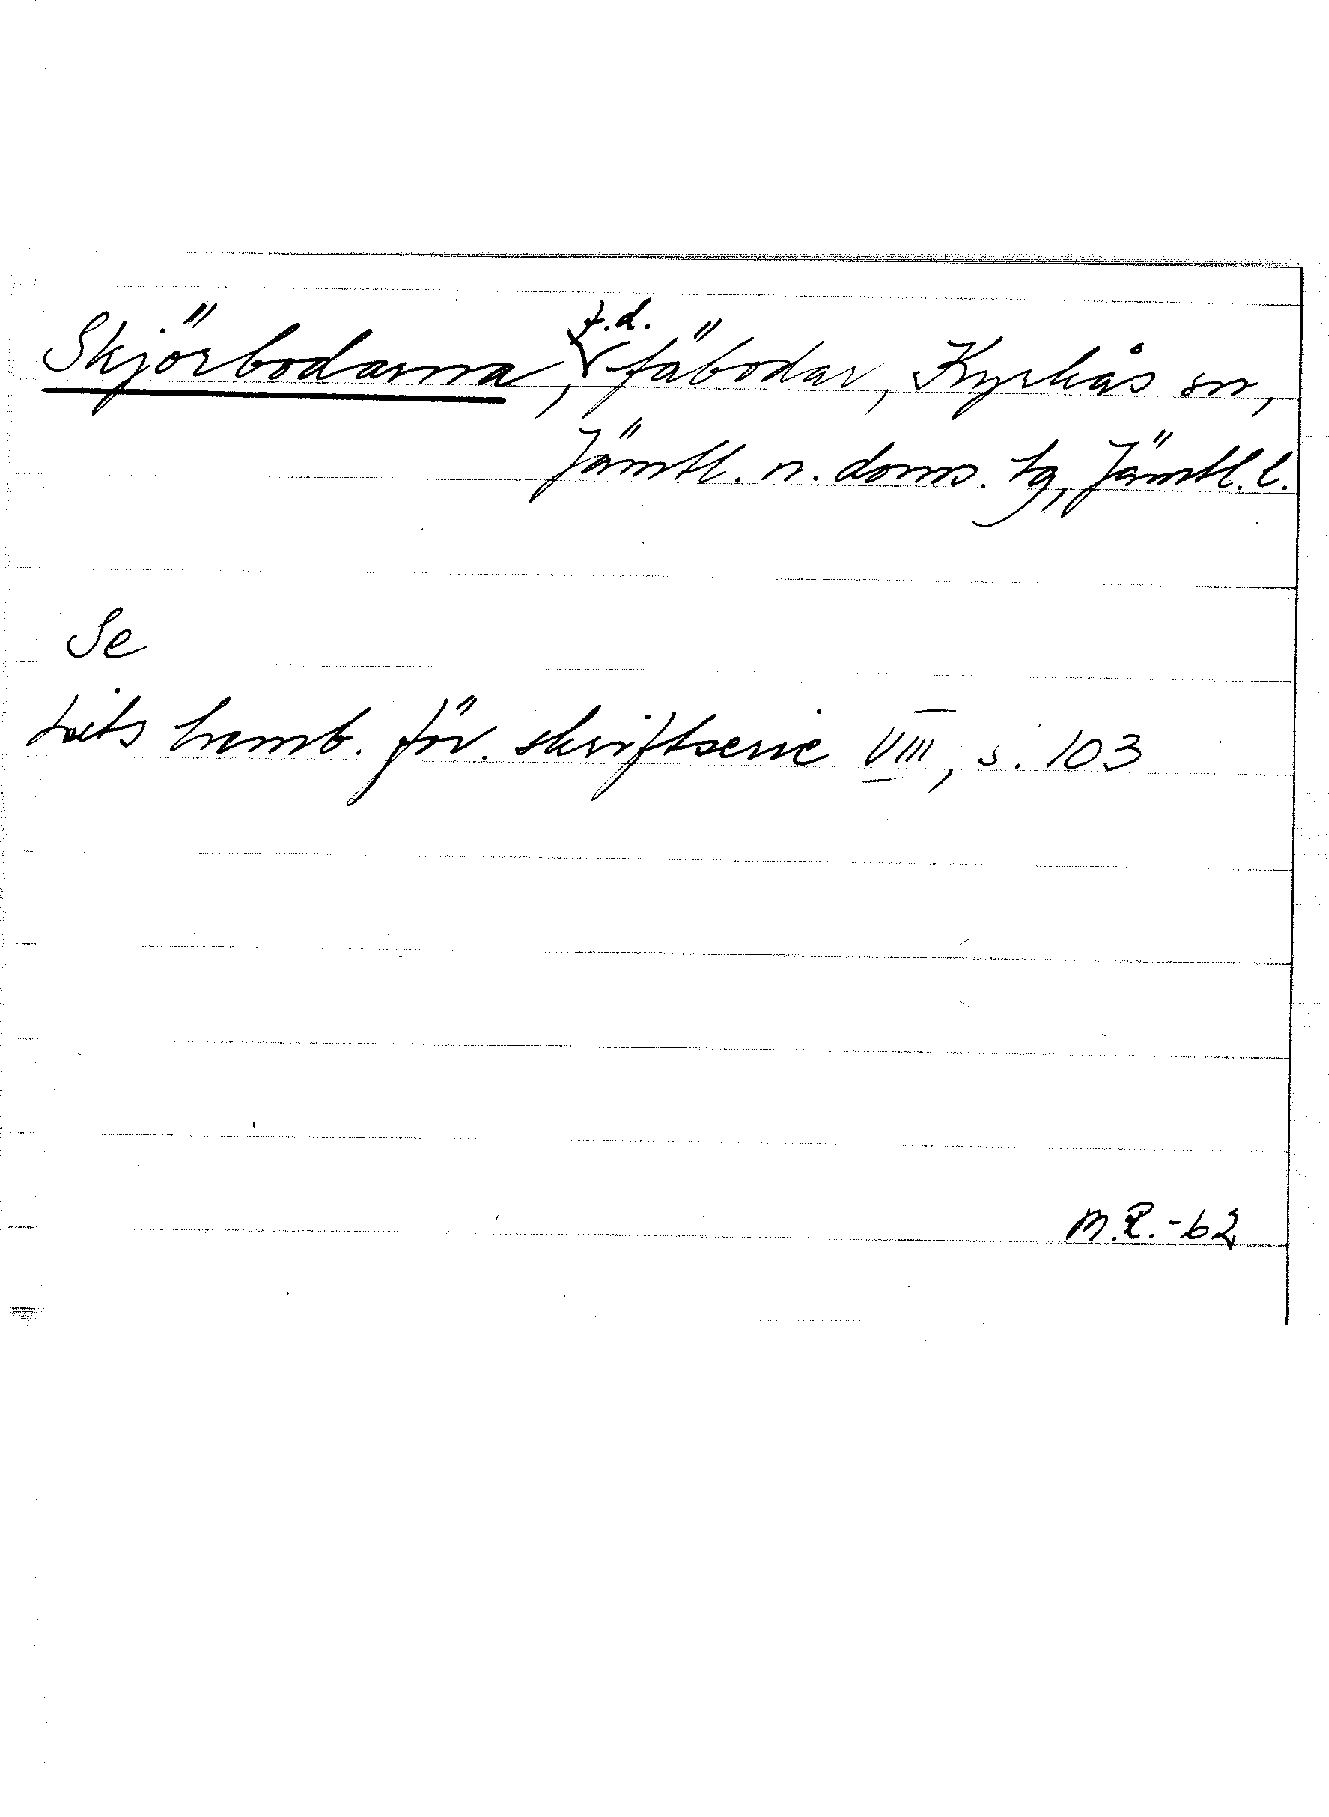 Skjörbodarna, f.d. fäbodar, Kyrkås sn,
Jämtl. n. doms. tg, Jämtl. l.
Se
Lits hemb. för. skriftserie VIII, s. 103
M.R. -62